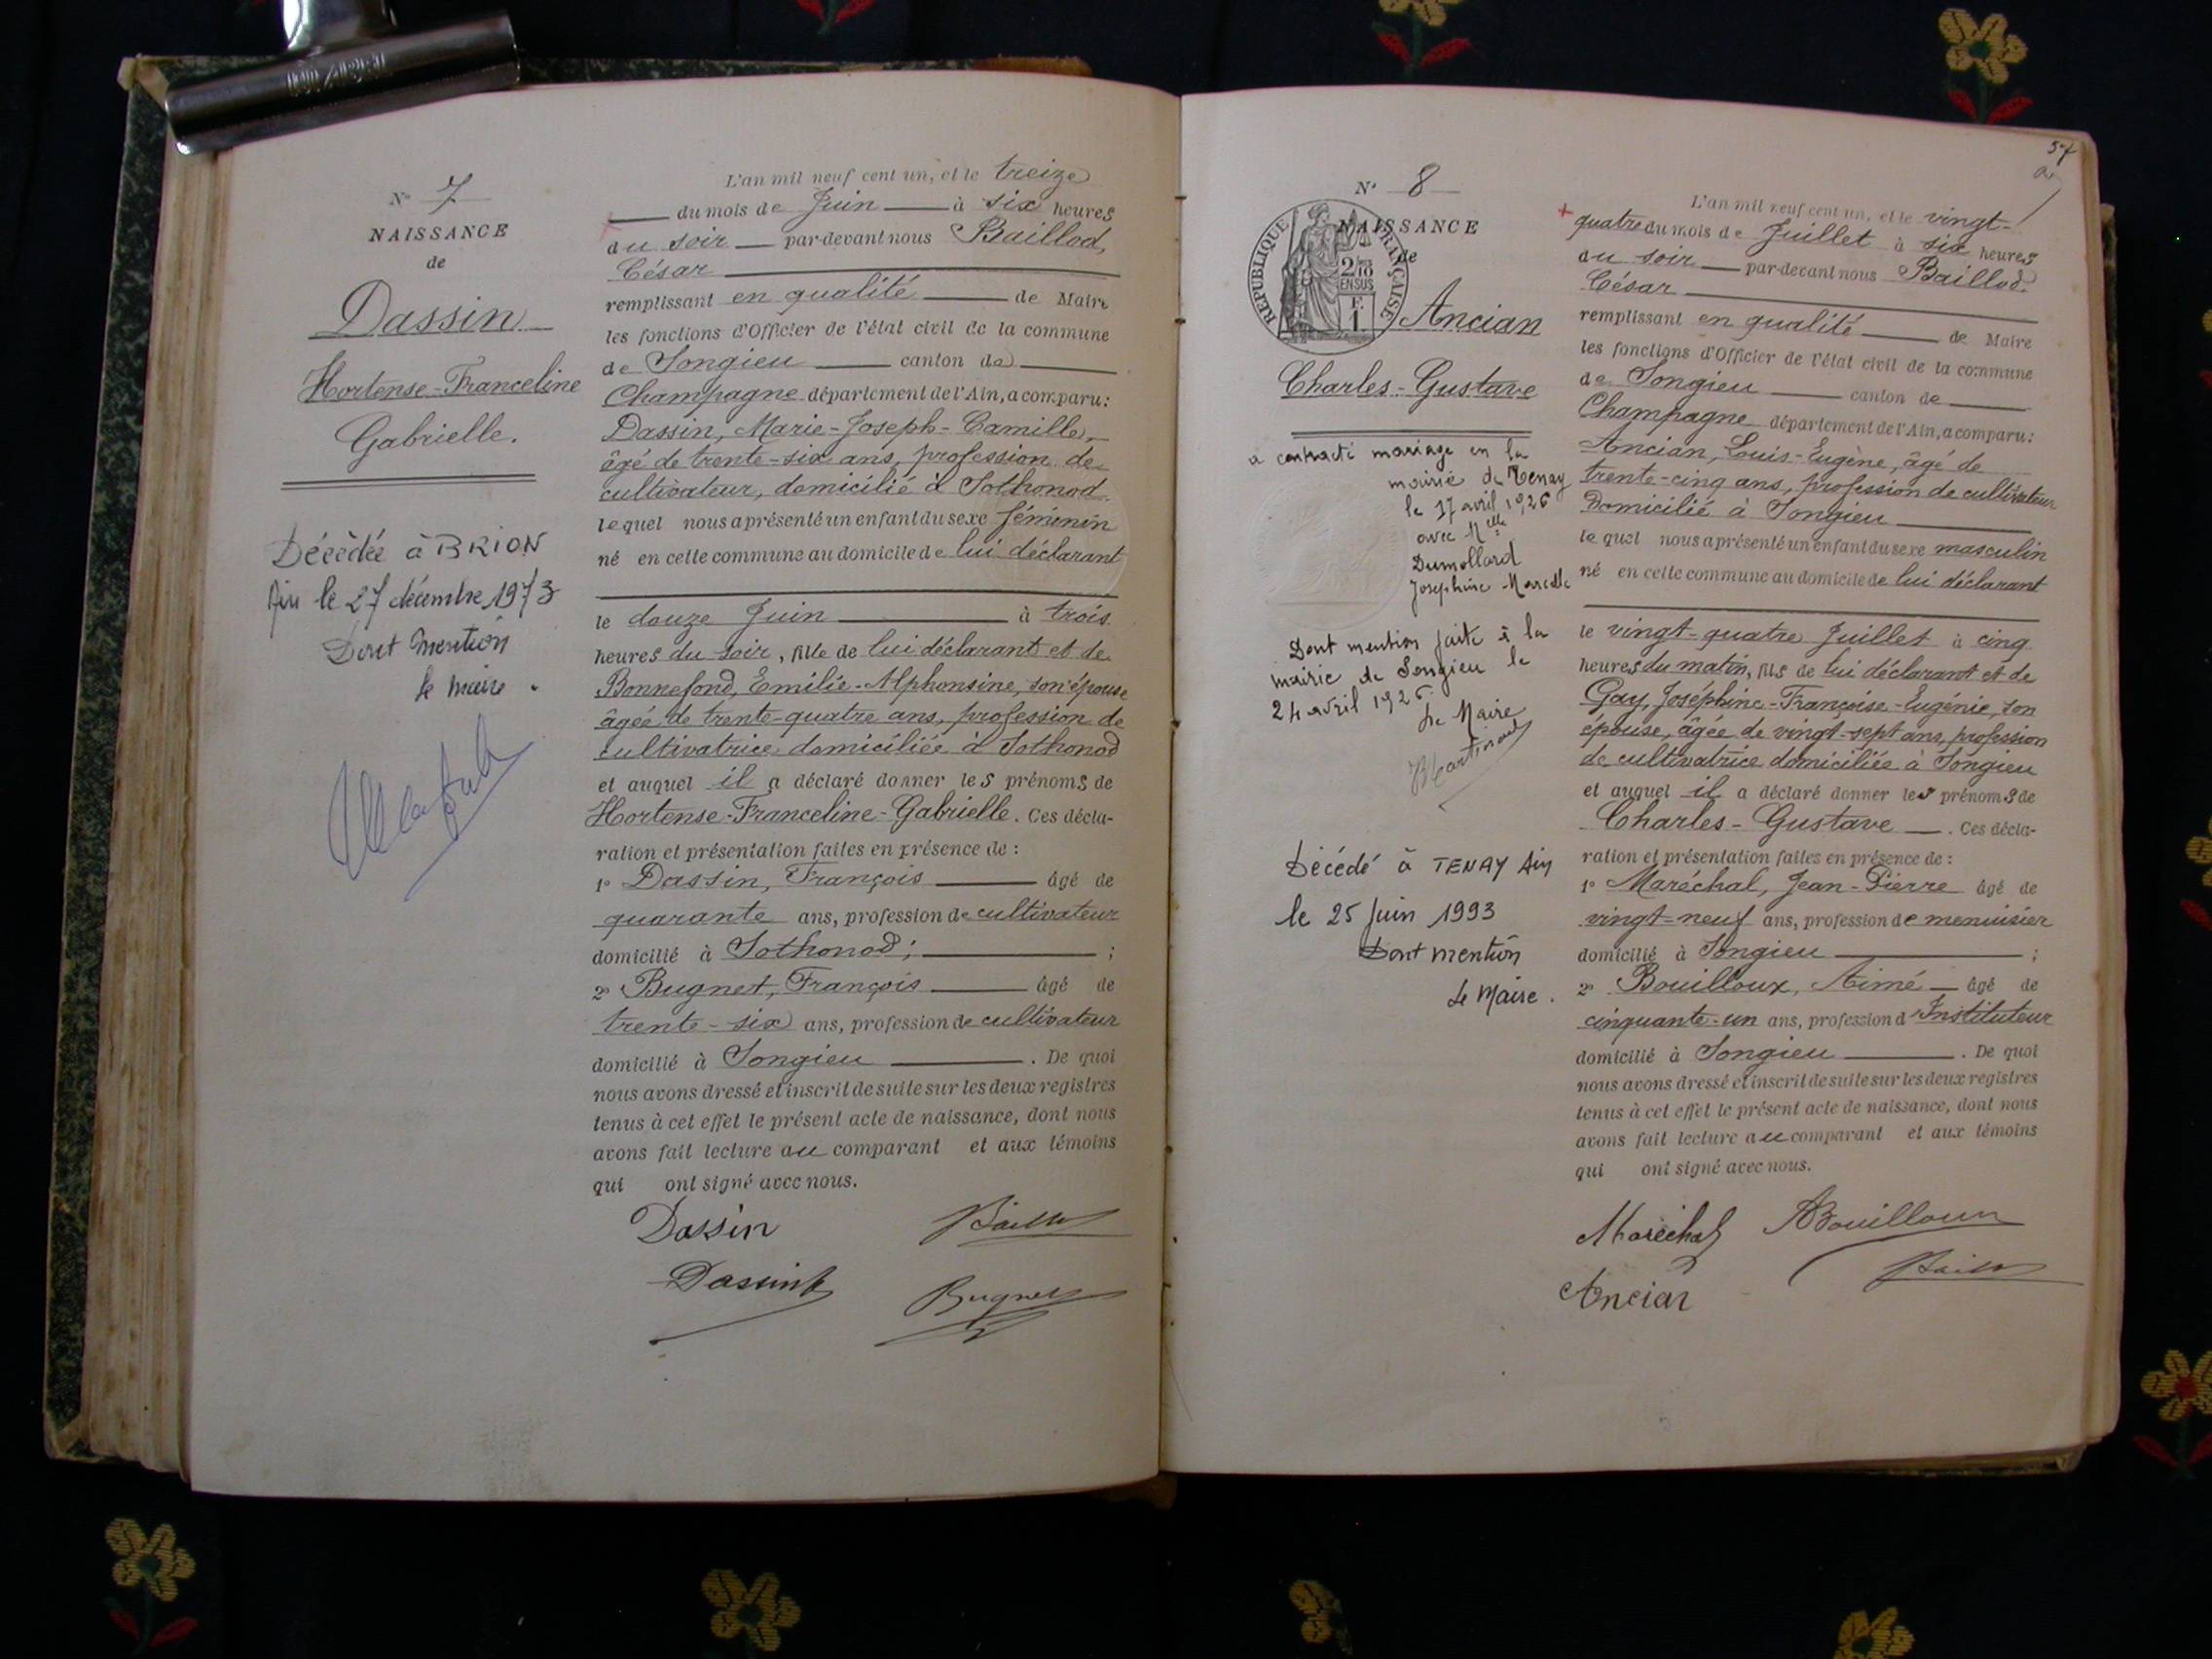 N° 7
NAISSANCE
de
Dassin
Hortense-Franceline
Gabrielle.
Décédée à BRION
Ain le 27 décembre 1973
Dont mention
le maire.
L'an mil neuf cent un, et le treize
du mois de Juin à six heures
du soir par-devant nous Baillod,
César
remplissant en qualité de Maire
les fonctions d'Officier de l'état civil de la commune
de Songieu canton de
Champagne département de l'Ain, a comparu:
Dassin, Marie-Joseph-Camille,
âgé de trente-six ans, profession de
cultivateur, domicilié à Sothonod
lequel nous a présenté un enfant du sexe féminin
né en cette commune au domicile de lui déclarant
le douze Juin à trois
heures du soir, fille de lui déclarant et de
Bonnefond, Emilie-Alphonsine, son épouse
âgée de trente-quatre ans, profession de
cultivatrice domiciliée à Sothonod
et auquel il a déclaré donner les prénoms de
Hortense-Franceline-Gabrielle. Ces décla-
ration et présentation faites en présence de:
1° Dassin, François âgé de
quarante ans, profession de cultivateur
domicilié à Sothonod; ;
2° Bugnet, François âgé de
trente-six ans, profession de cultivateur
domicilié à Songieu. De quoi
nous avons dressé et inscrit de suite sur les deux registres
tenus à cet effet le présent acte de naissance, dont nous
avons fait lecture au comparant et aux témoins
qui ont signé avec nous.
Dassin
Bugnet
57
N° 8
NAISSANCE
de
REPUBLIQUE FRANÇAISE
2/10
EN SUS
F.
1
Ancian
Charles-Gustave
a contracté mariage en la
mairie de Tenay
le 17 avril 1926
avec Melle
Dumollard
Joséphine-Marcelle
Dont mention faite à la
mairie de Songieu le
24 avril 1926
Le Maire
Décédé à TENAY Ain
le 25 Juin 1993
Dont mention
Le Maire.
L'an mil neuf cent un, et le vingt-
quatre du mois de Juillet à six heures
du soir par-devant nous Baillod,
César
remplissant en qualité de Maire
les fonctions d'Officier de l'état civil de la commune
de Songieu canton de
Champagne département de l'Ain, a comparu:
Ancian, Louis-Eugène, âgé de
trente-cinq ans, profession de cultivateur
Domicilié à Songieu
lequel nous a présenté un enfant du sexe masculin
né en cette commune au domicile de lui déclarant
le vingt-quatre Juillet à cinq
heures du matin, fils de lui déclarant et de
Gay, Joséphine-Françoise-Eugénie, son
épouse, âgée de vingt-sept ans, profession
de cultivatrice domiciliée à Songieu
et auquel il a déclaré donner les prénoms de
Charles-Gustave. Ces décla-
ration et présentation faites en présence de:
1° Maréchal, Jean-Pierre âgé de
vingt-neuf ans, profession de menuisier
domicilié à Songieu ;
2° Bouilloux, Aimé âgé de
cinquante-un ans, profession d'Instituteur
domicilié à Songieu. De quoi
nous avons dressé et inscrit de suite sur les deux registres
tenus à cet effet le présent acte de naissance, dont nous
avons fait lecture au comparant et aux témoins
qui ont signé avec nous.
Maréchal ABouilloux
Ancian